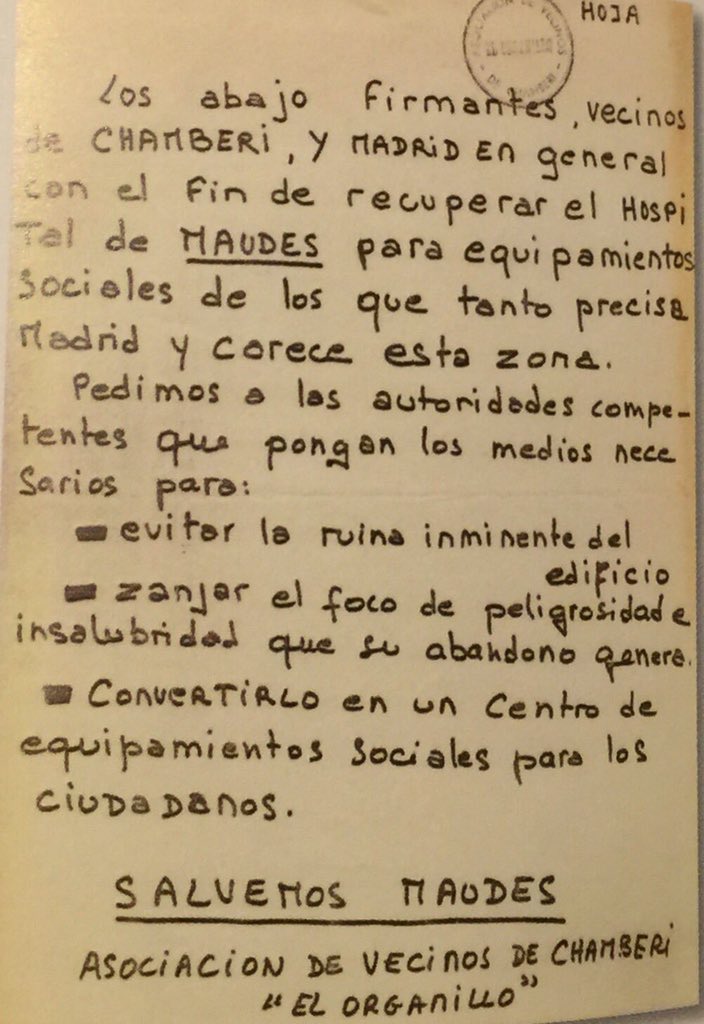 HOJA
Los abajo firmantes, vecinos
de CHAMBERí, Y MADRiD EN general
con el fin de recuperar el HOSPi
Tal de MAUDES para equipamientos
sociales de los que tanto precisa
Madrid y carece esta zona.
Pedimos a las autoridades compe-
tentes que pongan los medios nece
sarios para:
- evitar la ruina inminente del
edificio
- zanjar el foco de peligrosidad e
insalubridad que su abandono genera.
- CONVERTIRLO en un centro de
equipamientos sociales para los
ciudadanos.
SALVEMOS MAUDES
ASOCIACION DE VECINOS DE CHAMBERí
"EL ORGANILLO"